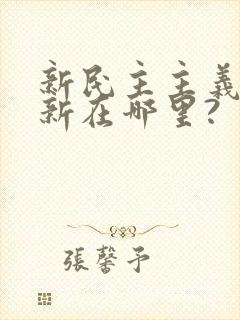 新民主主義
新在哪里?
張馨予